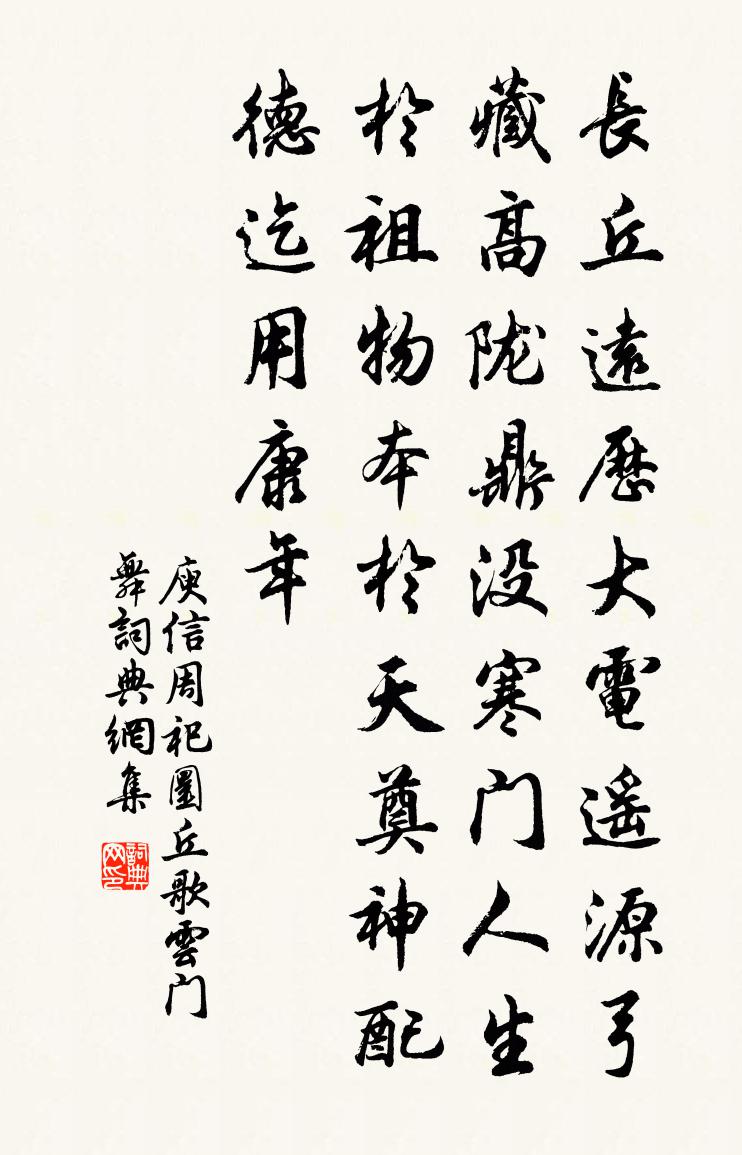 長丘遠歷大電遥源弓
藏高陇鼎没寒門人生
於祖物本於天奠神配
德迄用康年
庾信周祀圜丘歌雲門
舞詞典網集
詞典網印